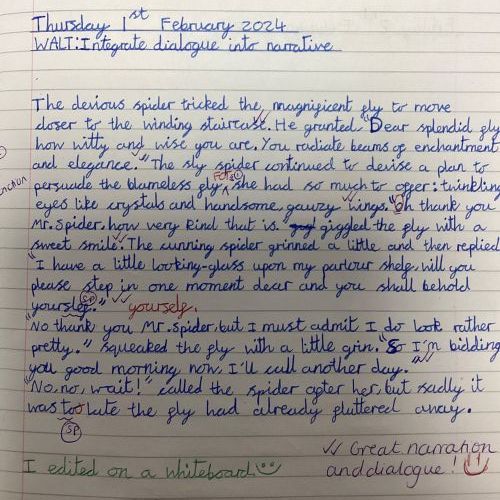 Thursday 1st February 2024
WALT: Integrate dialogue into narrative
The devious spider tricked the magnificent fly to move
closer to the winding staircase. He granted, "Dear splendid fly
how witty and wise you are. You radiate beams of enchantment
and elegance." The sly spider continued to devise a plan to
persuade the blameless fly, she had so much to offer: twinkling
eyes like crystals and handsome, gauzy wings. "Oh thank you
Mr. Spider, how very kind that is. giggled the fly with a
sweet smile. The cunning spider grinned a little and then replied
"I have a little looking-glass upon my parlour shelf, will you
please step in one moment dear and you shall behold
yourslef." sp yourself.
"No thank you Mr. Spider, but I must admit I do look rather
pretty." squeaked the fly with a little grin. "So I'm bidding
you good morning now, I'll call another day."
"No, no, wait!" called the spider after her, but sadly it
was too late the fly had already fluttered away.
sp
I edited on a whiteboard.
Great narration
and dialogue!